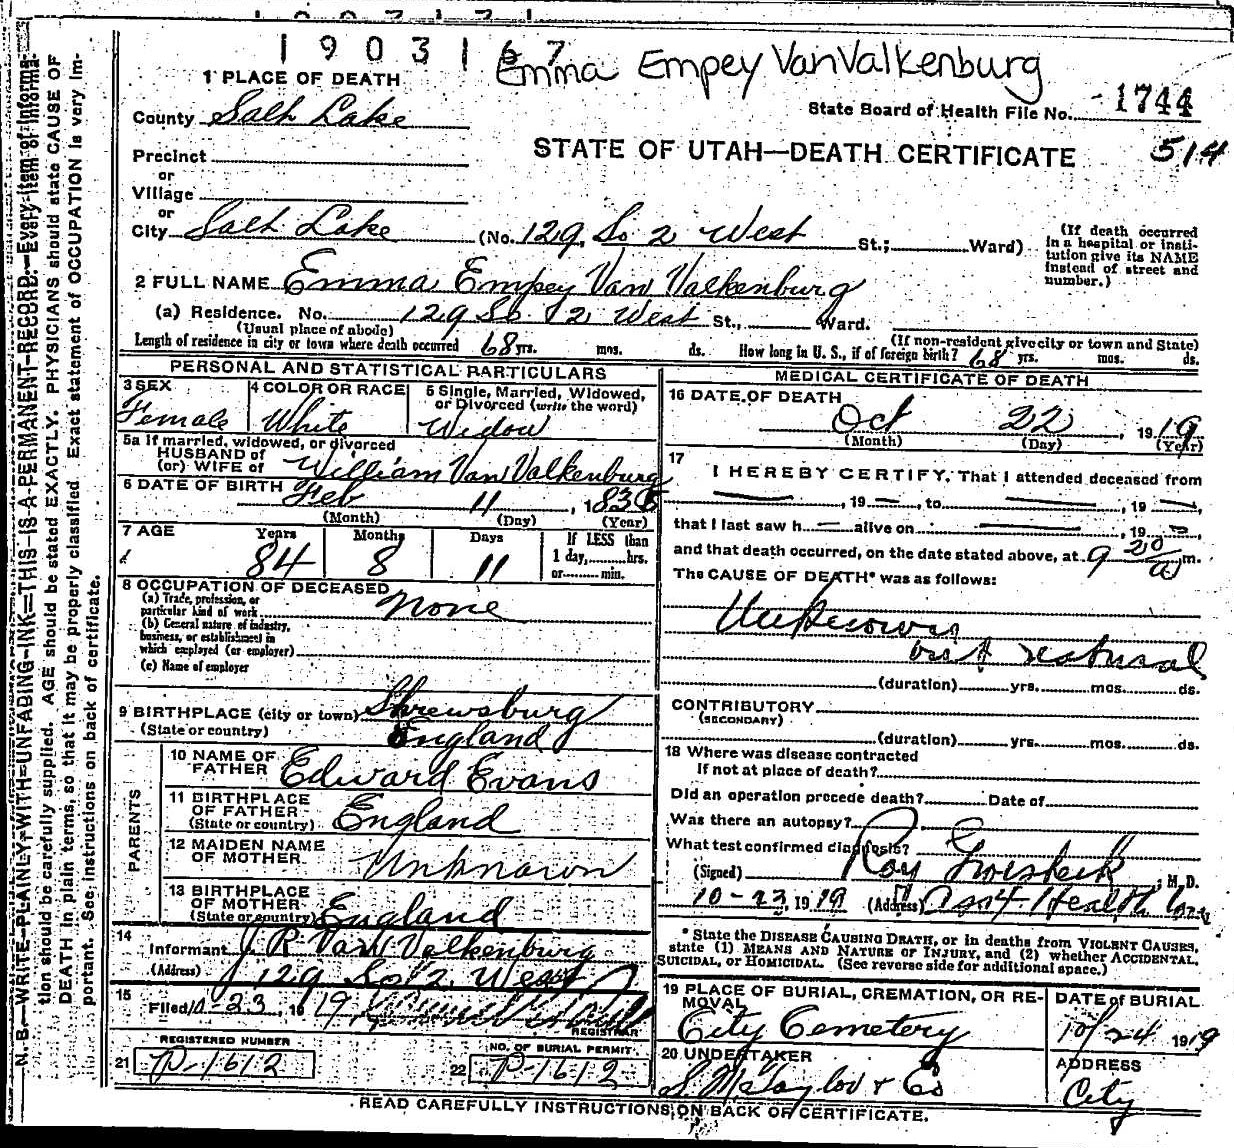 1903167
Emma Empey VanValkenburg
1 PLACE OF DEATH
County Salt Lake
State Board of Health File No. 1744
STATE OF UTAH—DEATH CERTIFICATE 514
Precinct
or
Village
or
City Salt Lake (No. 129 So 2 West St.; Ward)
(If death occurred in a hospital or institution give its NAME instead of street and number.)
2 FULL NAME Emma Empey Van Valkenburg
(a) Residence. No. 129 So 2 West St., Ward.
(Usual place of abode) (If non-resident give city or town and State)
Length of residence in city or town where death occurred 68 yrs. mos. ds. How long in U. S., if of foreign birth? 68 yrs. mos. ds.
PERSONAL AND STATISTICAL PARTICULARS
3 SEX Female
4 COLOR OR RACE White
5 Single, Married, Widowed, or Divorced (write the word) Widow
5a If married, widowed, or divorced
HUSBAND of
(or) WIFE of William Van Valkenburg
6 DATE OF BIRTH Feb 11, 1835
(Month) (Day) (Year)
7 AGE Years Months Days If LESS than
84 8 11 1 day, hrs.
or min.
8 OCCUPATION OF DECEASED
(a) Trade, profession, or
particular kind of work None
(b) General nature of industry,
business, or establishment in
which employed (or employer)
(c) Name of employer
9 BIRTHPLACE (city or town) Shrewsburg
(State or country) England
PARENTS
10 NAME OF
FATHER Edward Evans
11 BIRTHPLACE
OF FATHER
(State or country) England
12 MAIDEN NAME
OF MOTHER Unknown
13 BIRTHPLACE
OF MOTHER
(State or country) England
14
Informant J R Van Valkenburg
(Address) 129 So 2. West
15
Filed 10-23, 1919
REGISTRAR
REGISTERED NUMBER
21 P-1612
NO. OF BURIAL PERMIT
22 P-1612
MEDICAL CERTIFICATE OF DEATH
16 DATE OF DEATH
Oct 22, 1919
(Month) (Day) (Year)
17
I HEREBY CERTIFY, That I attended deceased from
, 19 , to , 19 ,
that I last saw h alive on , 19
and that death occurred, on the date stated above, at 9 20/a m.
The CAUSE OF DEATH* was as follows:
Unknown
but natural
(duration) yrs. mos. ds.
CONTRIBUTORY
(SECONDARY)
(duration) yrs. mos. ds.
18 Where was disease contracted
If not at place of death?
Did an operation precede death? Date of
Was there an autopsy?
What test confirmed diagnosis?
(Signed) Roy , M. D.
10-23, 1919 (Address) Asst Health Com
* State the DISEASE CAUSING DEATH, or in deaths from VIOLENT CAUSES,
state (1) MEANS AND NATURE OF INJURY, and (2) whether ACCIDENTAL,
SUICIDAL, or HOMICIDAL. (See reverse side for additional space.)
19 PLACE OF BURIAL, CREMATION, OR RE-
MOVAL
City Cemetery
DATE of BURIAL
10/24 1919
20 UNDERTAKER
S. M. Taylor & Co
ADDRESS
City
READ CAREFULLY INSTRUCTIONS ON BACK OF CERTIFICATE.
N. B.—WRITE PLAINLY WITH UNFADING INK—THIS IS A PERMANENT RECORD. Every item of informa-
tion should be carefully supplied. AGE should be stated EXACTLY. PHYSICIANS should state CAUSE OF
DEATH in plain terms, so that it may be properly classified. Exact statement of OCCUPATION is very im-
portant. See instructions on back of certificate.